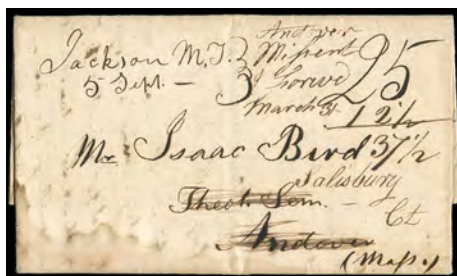 Jackson M.T.
5 Sept. —
Andover
Missent
& Forwd
March 31
25
12½
37½
Mr Isaac Bird
Salisbury
Theol. Sem. —
Ct
Andover
(Mass.)